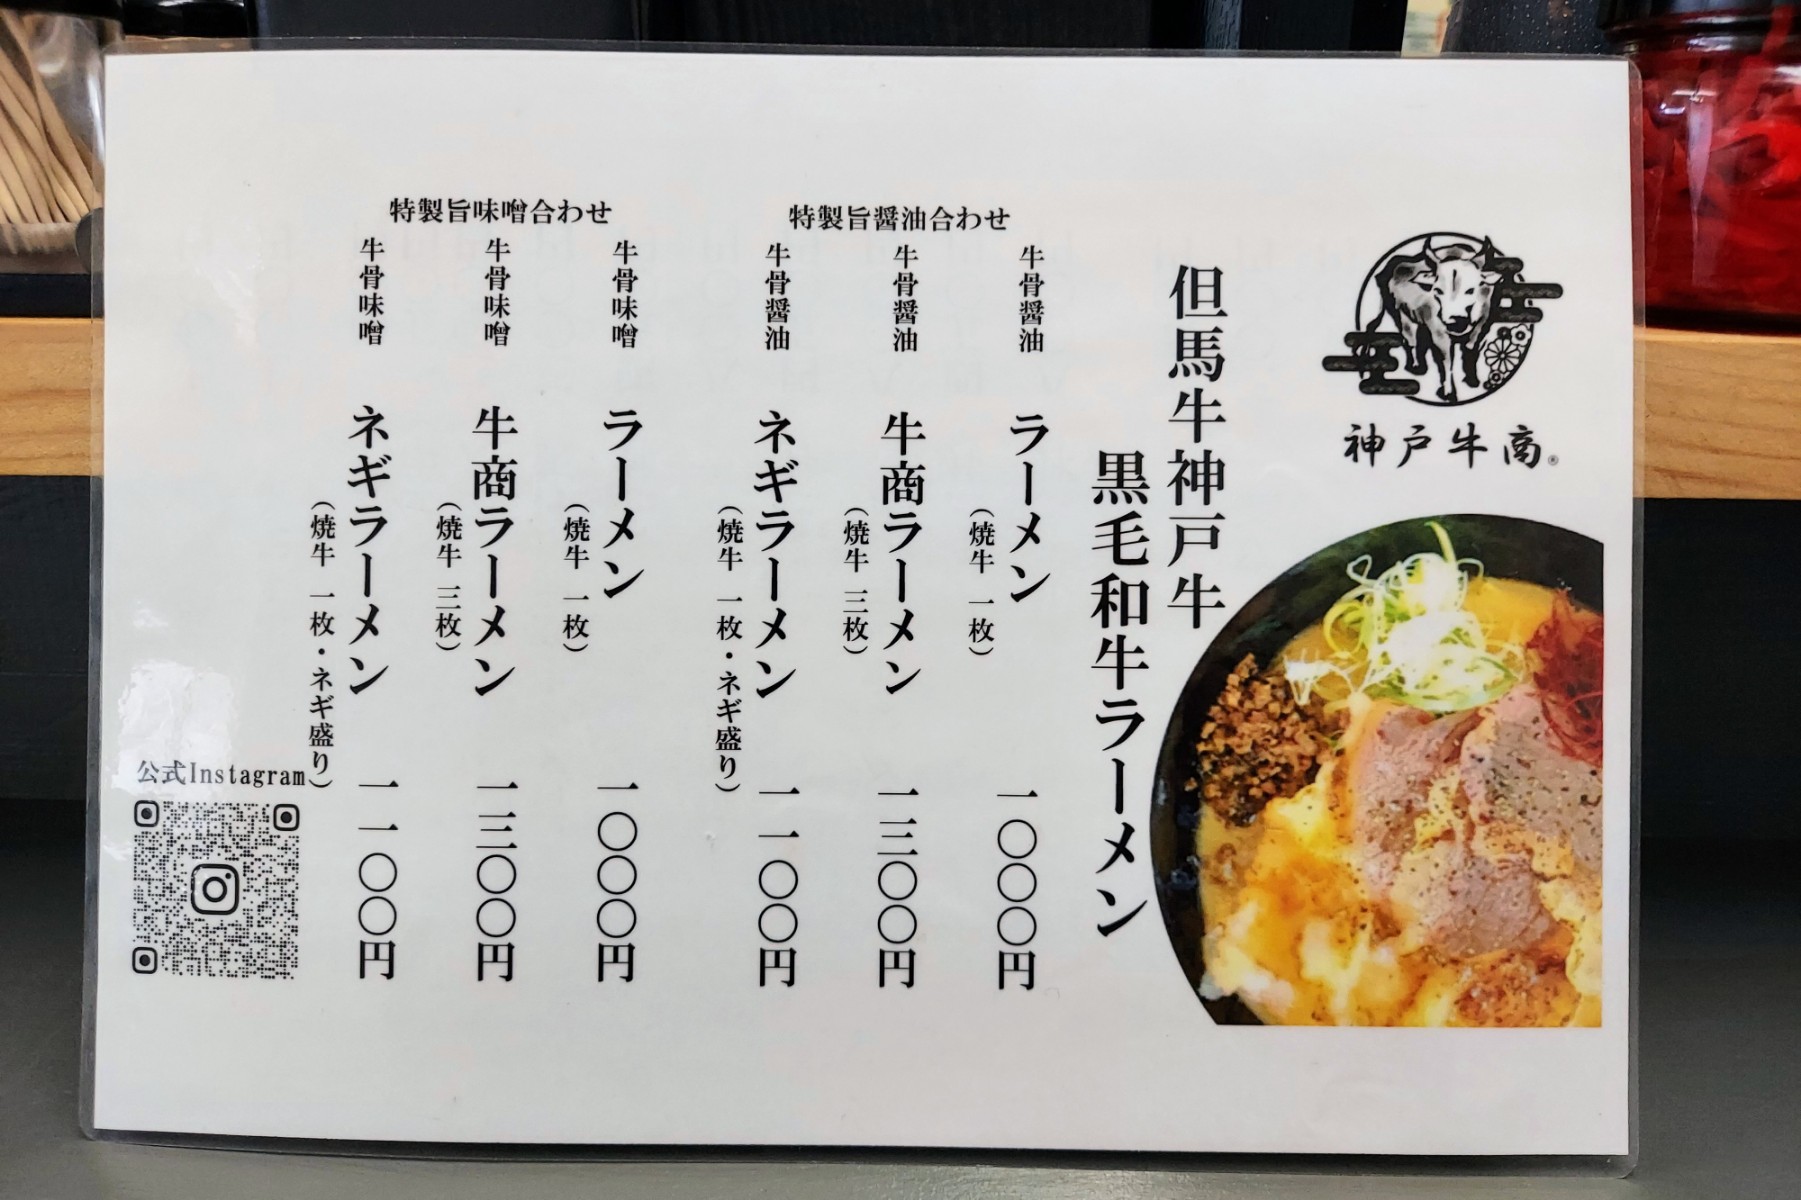 神戸牛商®
但馬牛神戸牛
黒毛和牛ラーメン
特製旨醤油合わせ
牛骨醤油 ラーメン 一〇〇〇円
（焼牛 一枚）
牛骨醤油 牛商ラーメン 一三〇〇円
（焼牛 三枚）
牛骨醤油 ネギラーメン 一一〇〇円
（焼牛 一枚・ネギ盛り）
特製旨味噌合わせ
牛骨味噌 ラーメン 一〇〇〇円
（焼牛 一枚）
牛骨味噌 牛商ラーメン 一三〇〇円
（焼牛 三枚）
牛骨味噌 ネギラーメン 一一〇〇円
（焼牛 一枚・ネギ盛り）
公式Instagram